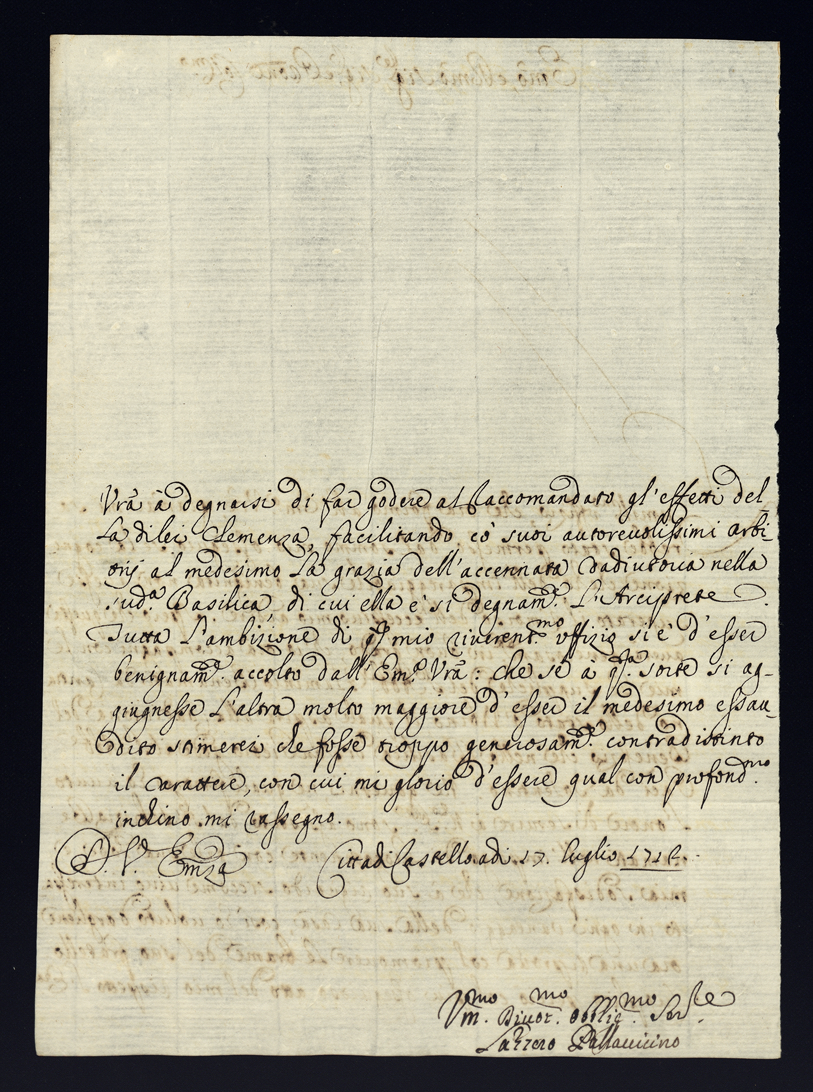 Vrã à degnarsi di far godere al Raccomandato gl'effetti del-
la di lei Clemenza, facilitando cò suoi autorevolissimi arbi-
trij al medesimo la grazia dell'accennata dadiutoria nella
sud.ª Basilica, di cui ella e' si degnam.te L'Arciprete.
Tutta l'ambizione di q.to mio riverent.mo offizio si è d'esser
benignam.te accolto dall'Em.ª Vrã: che se à q.ta sorte si ag-
giugnesse l'altra molto maggiore d'esser il medesimo essau-
dito stimerei che fosse troppo generosam.te contradistinto
il carattere, con cui mi glorio d'essere qual con profond.mo
inchino mi rassegno.
D. V. Emza Città di Castello adi 17. luglio
Vm.mo Divot.mo Obblig.mo Ser.re
Lazzero Pallavicino